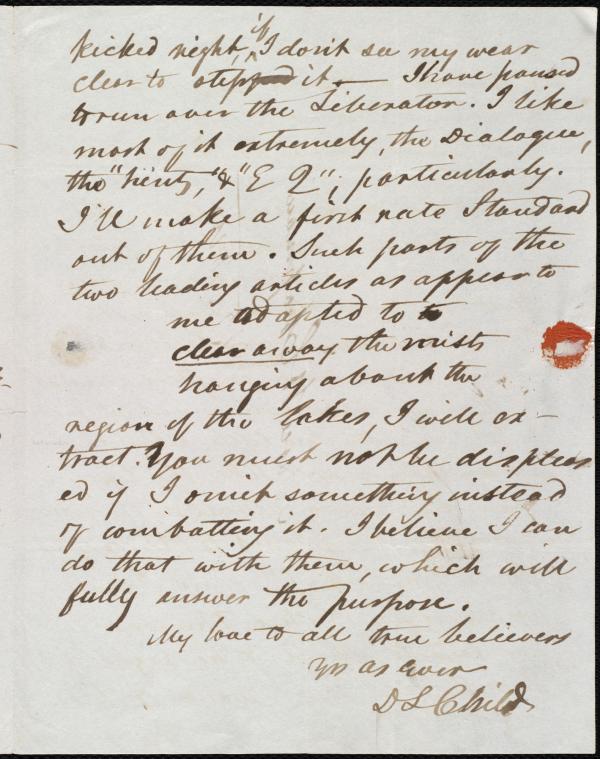 kicked right, if I don't see my wear
clear to stepped it. — I have paused
to run over the Liberator. I like
most of it extremely, the Dialogue,
the " " & "E Q", particularly.
I'll make a first rate Standard
out of them. Such parts of the
two leading articles as appear to
me adapted to to
clear away the mists
hanging about the
region of the lakes, I will ex-
tract. You must not be displeas
ed if I omit something instead
of combatting it. I believe I can
do that with them, which will
fully answer the purpose.
My love to all true believers
Yrs as ever
D L Child